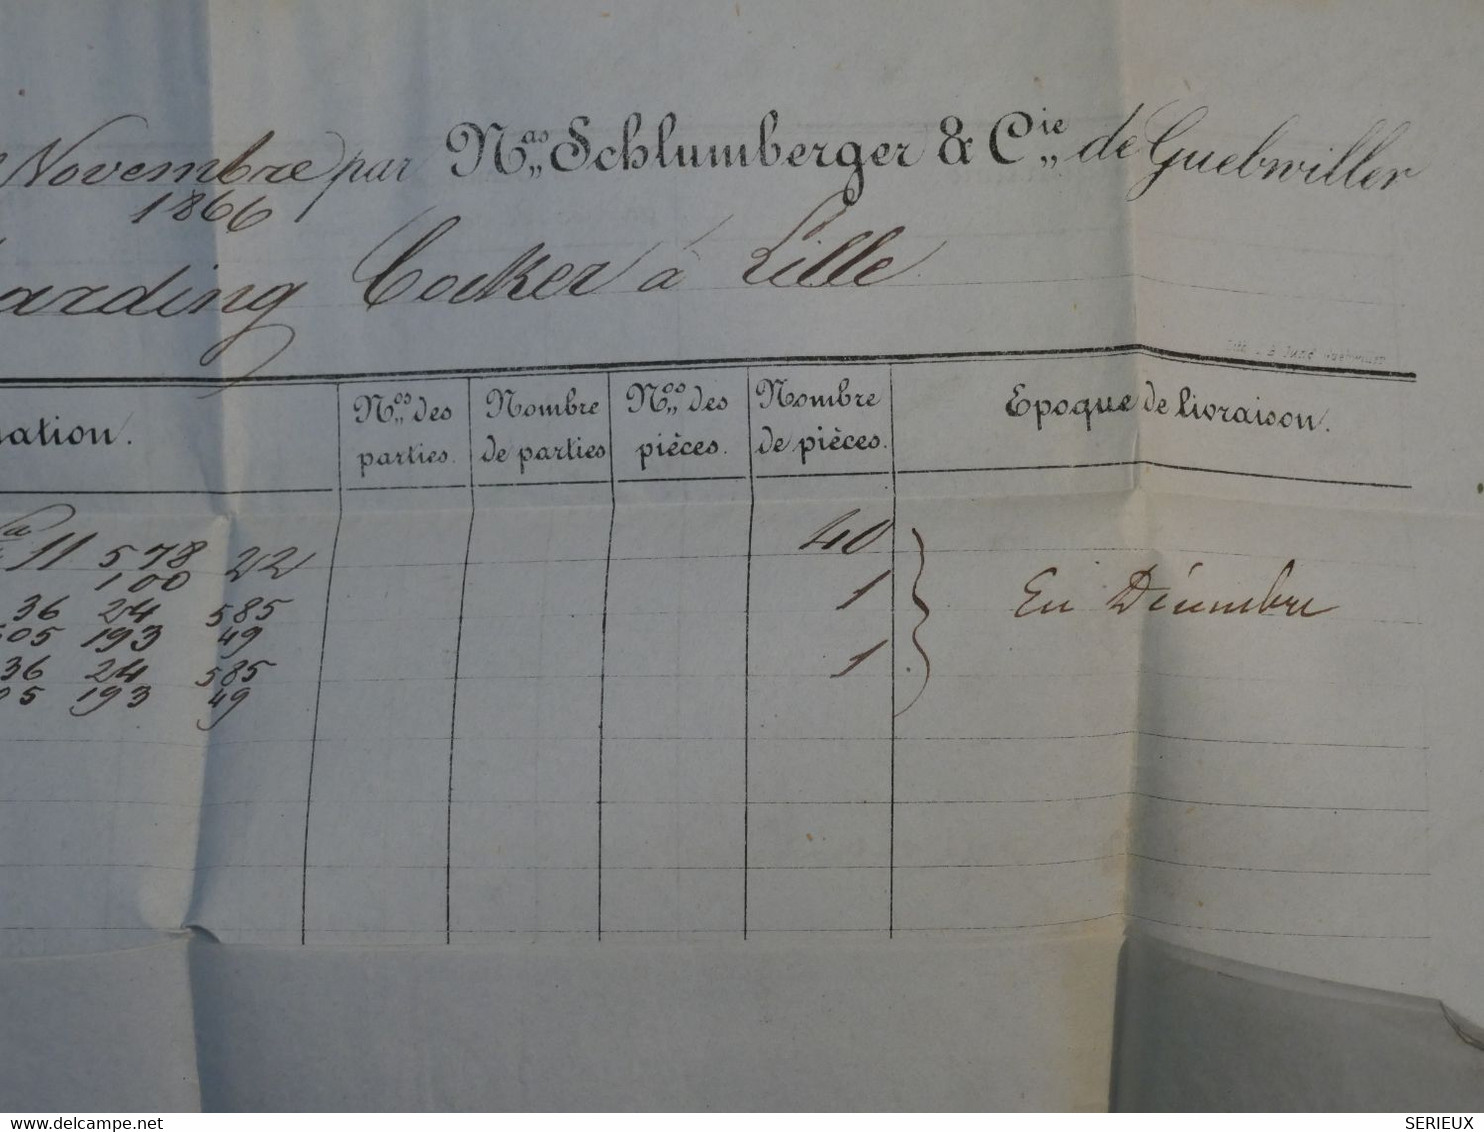 Novembre par N.as Schlumberger & C.ie de Guebwiller
1866
arding Cocker à Lille.
nation.
N.os des parties.
Nombre de parties
N.os des pièces.
Nombre de pièces.
Epoque de livraison.
11 578 22 40
100
36 24 585 1
505 193 49
36 24 585 1
05 193 49
En Décembre
delcampe.net
SERIEUX